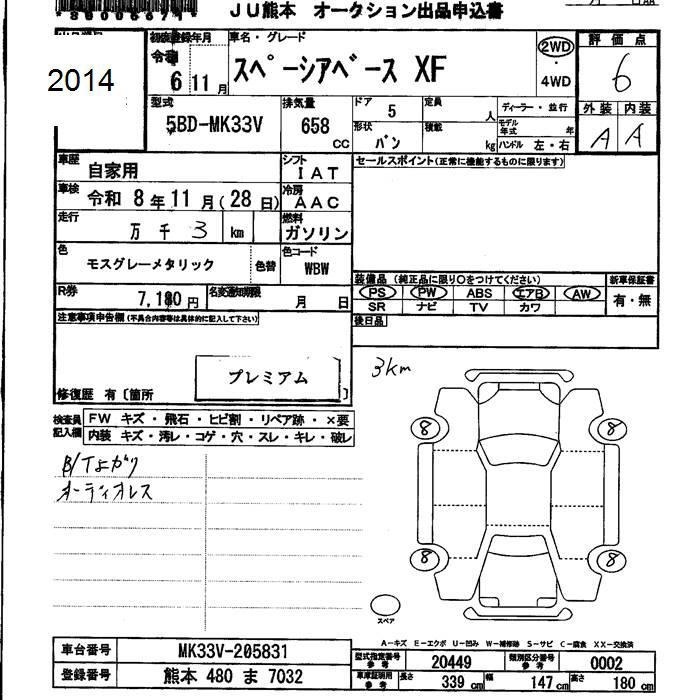 *8000667*
JU熊本 オークション出品申込書
2014
初度登録年月
令和
6 11月
車名・グレード
スペーシアベース XF
2WD
4WD
評価点
6
型式
5BD-MK33V
排気量
658 cc
ドア 5
形状 バン
定員 人
積載 kg
ディーラー・並行
モデル年式 年
ハンドル 左・右
外装 内装
A A
車歴
自家用
シフト
IAT
セールスポイント(正常に機能するものに限ります)
車検
令和 8年11月(28日)
冷房
AAC
走行
万 千 3 km
燃料
ガソリン
色
モスグレーメタリック
色替
色コード
WBW
R券
7,180円
名変通知期限
月 日
装備品 (純正品に限り○をつけてください)
新車保証書
PS PW ABS エアB AW
有・無
SR ナビ TV カワ
後日品
注意事項申告欄(不具合内容等は具体的に記入して下さい)
プレミアム
修復歴 有〔箇所 〕
3km
検査員記入欄
FW キズ・飛石・ヒビ割・リペア跡・×要
内装 キズ・汚レ・コゲ・穴・スレ・キレ・破レ
B/Tよがり
オーディオレス
8 8
8 8
スペア
A-キズ E-エクボ U-凹み W-補修跡 S-サビ C-腐食 XX-交換済
車台番号
MK33V-205831
登録番号
熊本 480 ま 7032
型式指定番号 参考
20449
類別区分番号 参考
0002
車庫証明用 参考
長さ 339 cm 幅 147 cm 高さ 180 cm